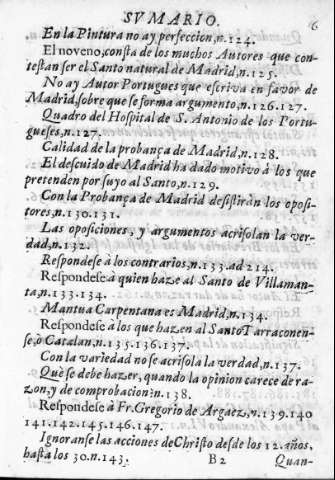 SVMARIO.
6
En la Pintura no ay perfeccion, n.124.
El noveno, consta de los muchos Autores que con-
testan ser el Santo natural de Madrid, n.125.
No ay Autor Portugues que escriva en favor de
Madrid, sobre que se forma argumento, n.126.127.
Quadro del Hospital de S. Antonio de los Portu-
gueses, n.127.
Calidad de la probança de Madrid, n.128.
El descuido de Madrid ha dado motivo à los que
pretenden por suyo al Santo, n.129.
Con la Probança de Madrid desistiràn los oposi-
tores, n.130.131.
Las oposiciones, y argumentos acrisolan la ver-
dad, n.132.
Respondese à los contrarios, n.133. ad 214.
Respondese à quien haze al Santo de Villaman-
ta, n.133.134.
Mantua Carpentana es Madrid, n.134.
Respondese à los que hazen al Santo Tarraconen-
se, ò Catalan, n.135.136.137.
Con la variedad no se acrisola la verdad, n.137.
Què se debe hazer, quando la opinion carece de ra-
zon, y de comprobacion? n.138.
Respondese à Fr. Gregorio de Argaez, n.139.140
141.142.145.146.147.
Ignoranse las acciones de Christo desde los 12. años,
hasta los 30. n.143.
B2
Quan-